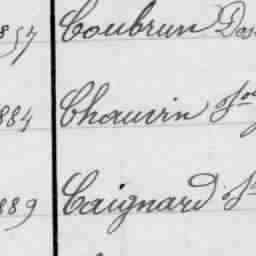 857 Coubrun
884 Chauvin
889 Caignard